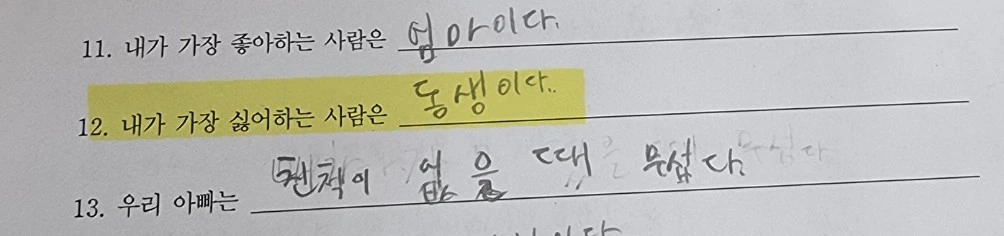 11. 내가 가장 좋아하는 사람은 엄마이다.
12. 내가 가장 싫어하는 사람은 동생이다.
13. 우리 아빠는 없을 때 무섭다.